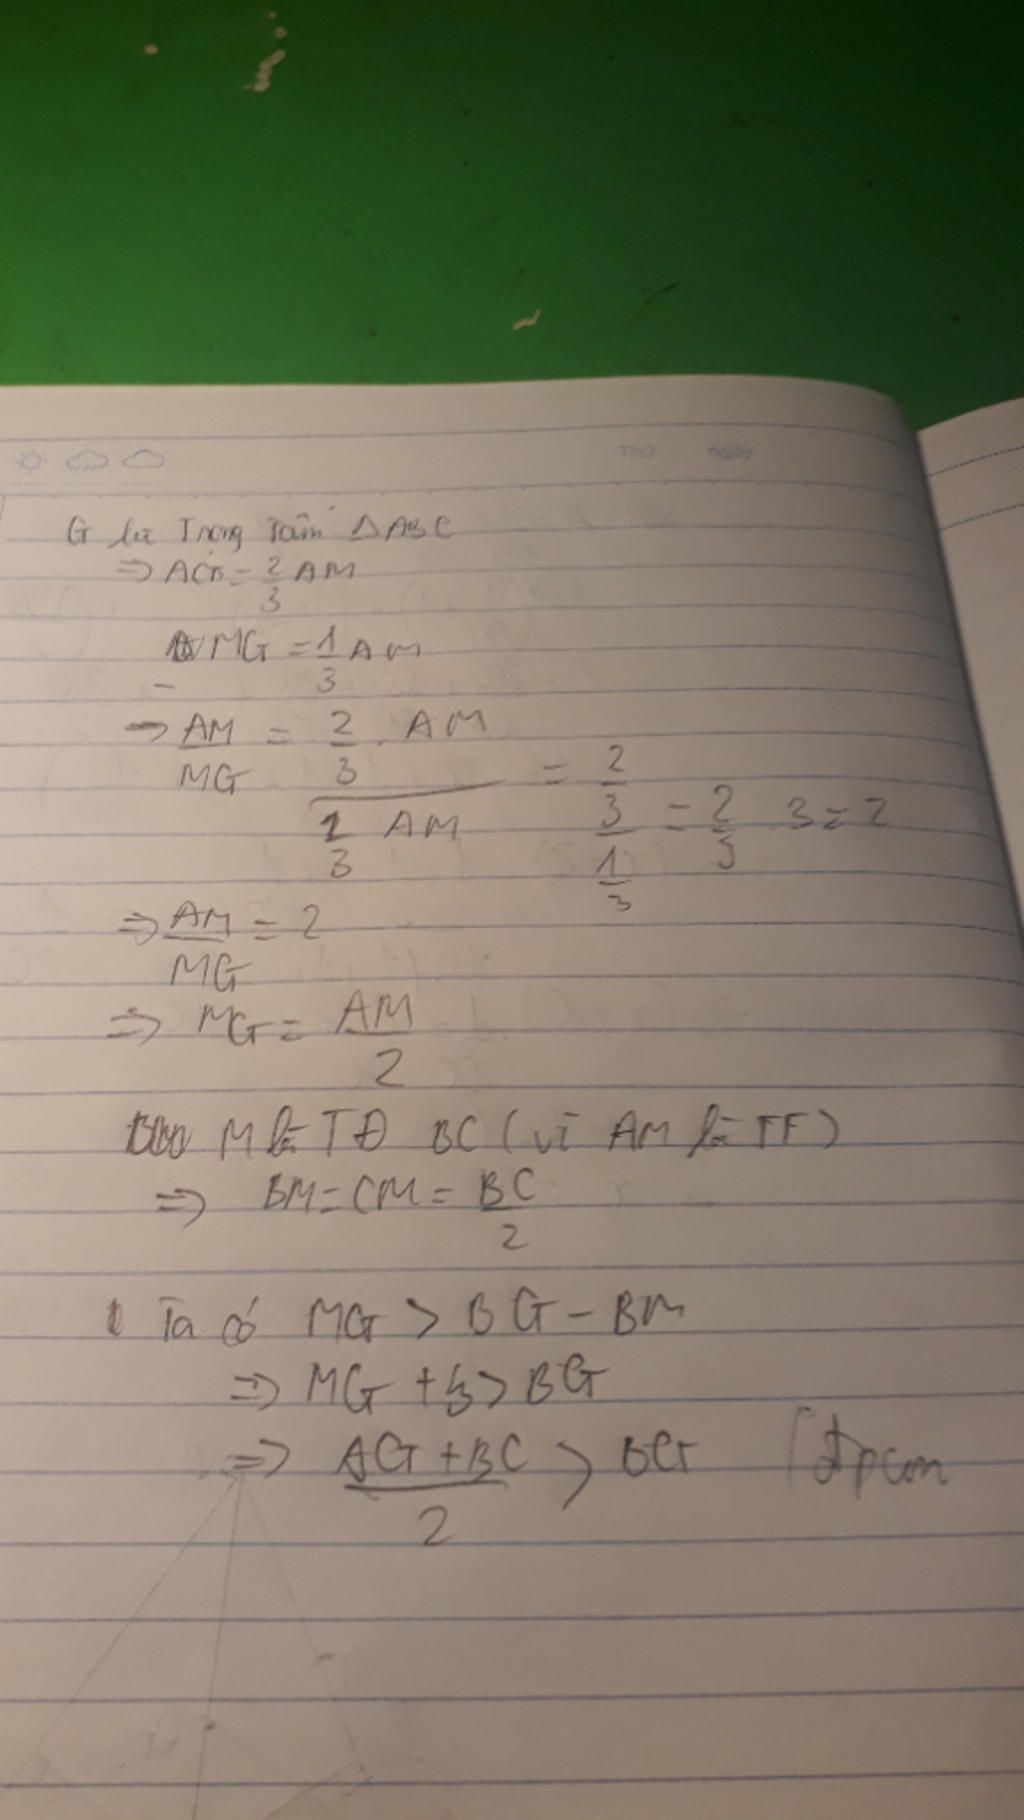 Thứ ngày
G là Trọng Tâm ΔABC
=> AG = 2/3 AM
MG = 1/3 AM
=> AM/MG = (2/3 . AM)/(1/3 AM) = (2/3)/(1/3) = 2/3 . 3 = 2
=> AM/MG = 2
=> MG = AM/2
M là TĐ BC (vì AM là TT)
=> BM = CM = BC/2
Ta có MG > BG - BM
=> MG + > BG
=> (AG + BC)/2 > BG (đpcm